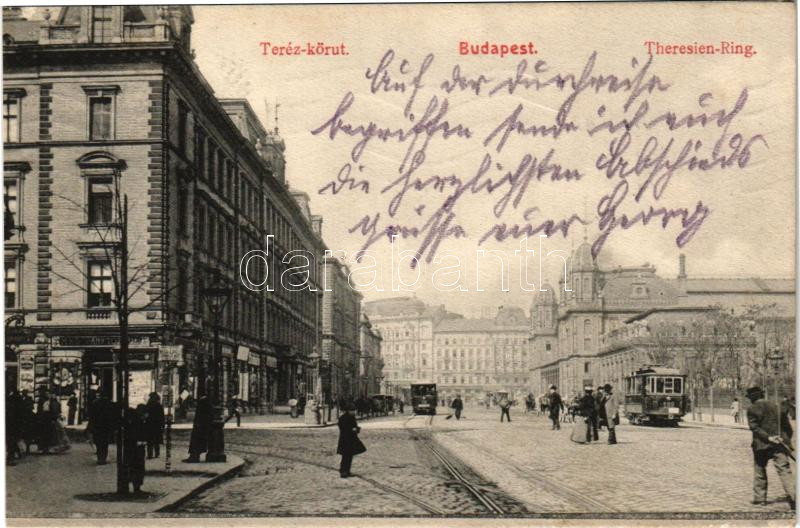 Teréz-körut. Budapest. Theresien-Ring.
Auf der Durchreise
begriffen sende ich euch
die herzlichsten Abschieds
grüsse euer Georg
darabanth